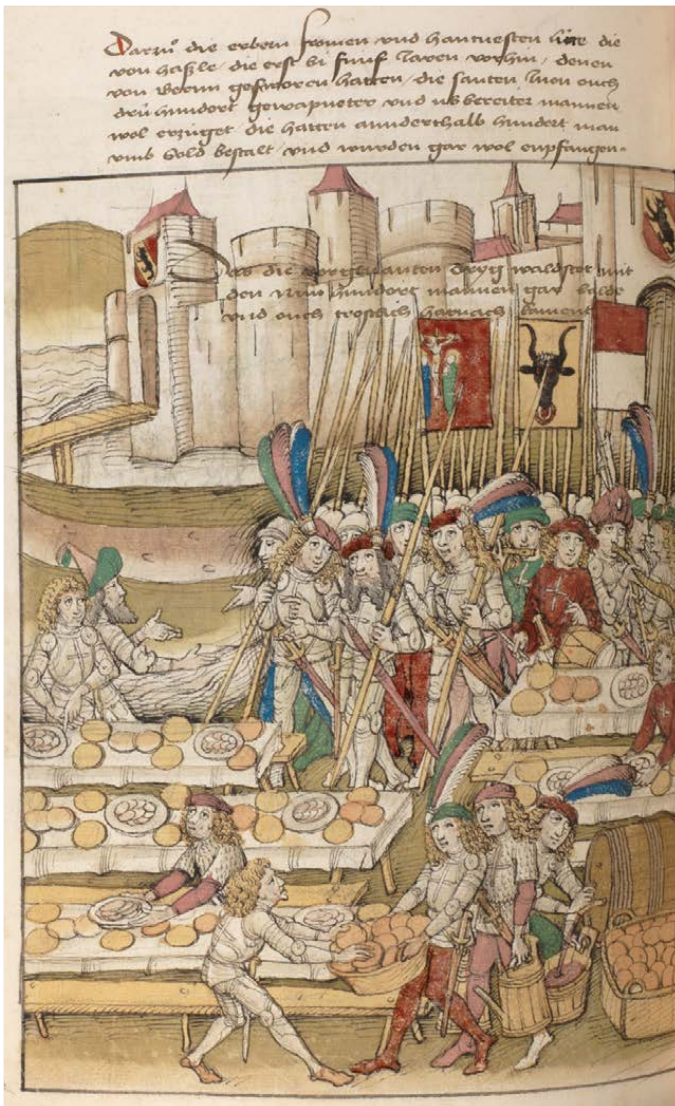 Darum die erbern fromen und hantuesten lütte die
von Haßle, die erst bi fünf Jaren vorhin, denen
von Bernn geschworen hatten, die santen Inen ouch
drühundert gewapneter und usbereiter mannen
wol erzüget die hatten annderthalb hundert man
umb Sold bestalt, und wurden gar wol enpfangen.
Das die vorgenanten dryg waldstet mit
den Nün hundert mannen gar balde
und ouch trostlich harnach kament